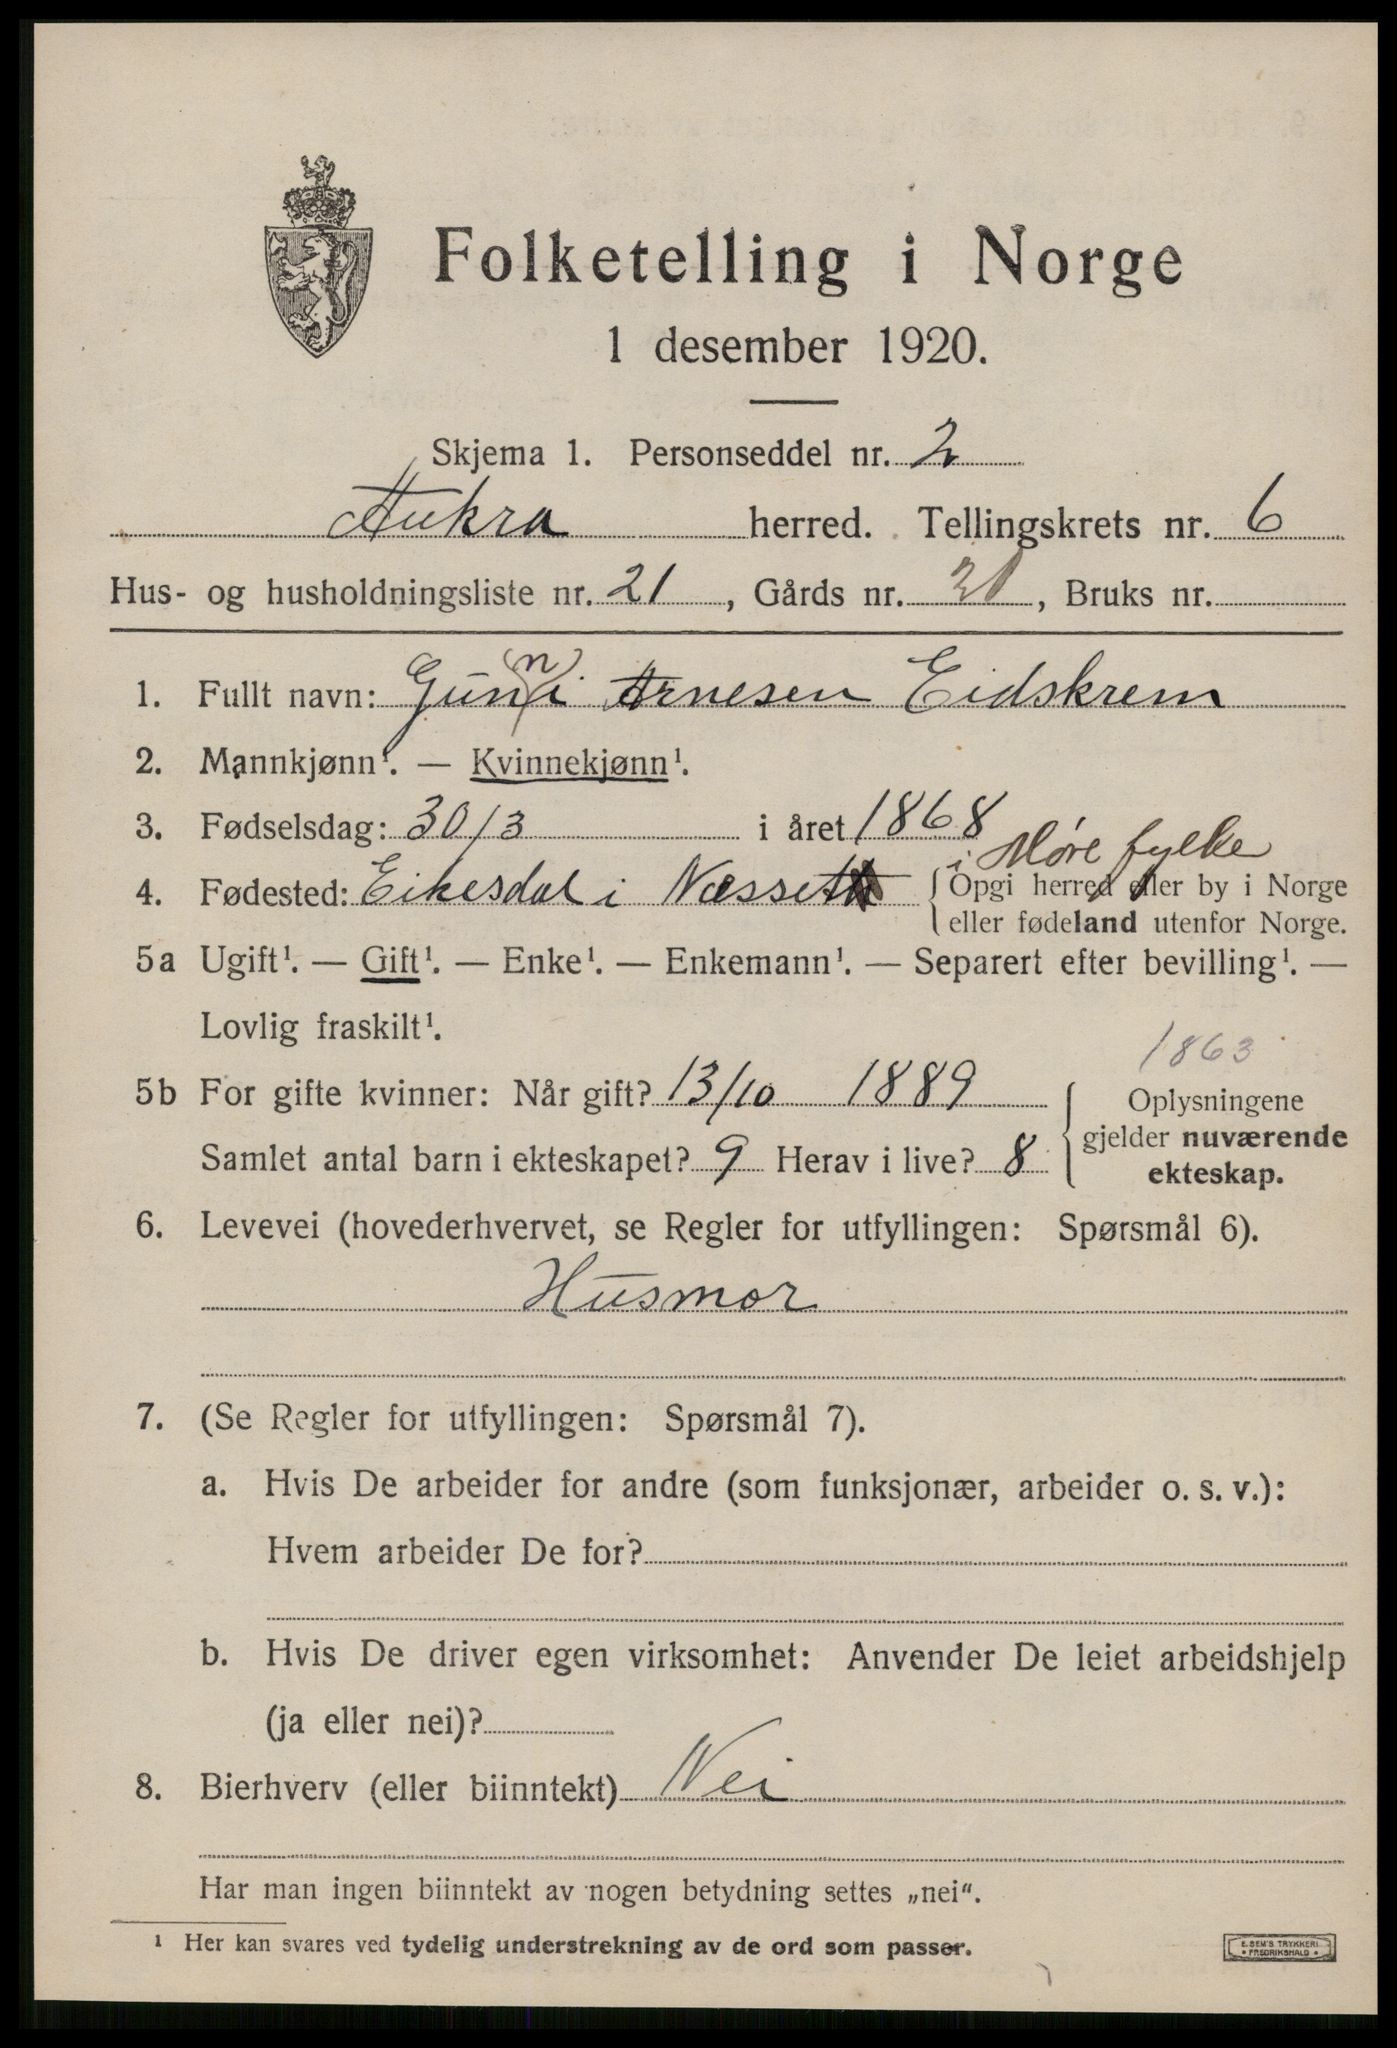 Folketelling i Norge
1 desember 1920.
Skjema 1. Personseddel nr. 2
Aukra herred. Tellingskrets nr. 6
Hus- og husholdningsliste nr. 21, Gårds nr. 21, Bruks nr.
(n)
1. Fullt navn: Guni Arnesen Eidskrem
2. Mannkjønn¹. — Kvinnekjønn¹.
3. Fødselsdag: 30/3 i året 1868
i Møre fylke
4. Fødested: Eikesdal i Næsset { Opgi herred eller by i Norge
eller fødeland utenfor Norge.
5a Ugift¹. — Gift¹. — Enke¹. — Enkemann¹. — Separert efter bevilling¹. —
Lovlig fraskilt¹.
1863
5b For gifte kvinner: Når gift? 13/10 1889 { Oplysningene
gjelder nuværende
Samlet antal barn i ekteskapet? 9 Herav i live? 8 ekteskap.
6. Levevei (hovederhvervet, se Regler for utfyllingen: Spørsmål 6).
Husmor
7. (Se Regler for utfyllingen: Spørsmål 7).
a. Hvis De arbeider for andre (som funksjonær, arbeider o. s. v.):
Hvem arbeider De for?
b. Hvis De driver egen virksomhet: Anvender De leiet arbeidshjelp
(ja eller nei)?
8. Bierhverv (eller biinntekt) Nei
Har man ingen biinntekt av nogen betydning settes „nei“.
¹ Her kan svares ved tydelig understrekning av de ord som passer.
E. SEM'S TRYKKERI
• FREDRIKSHALD •